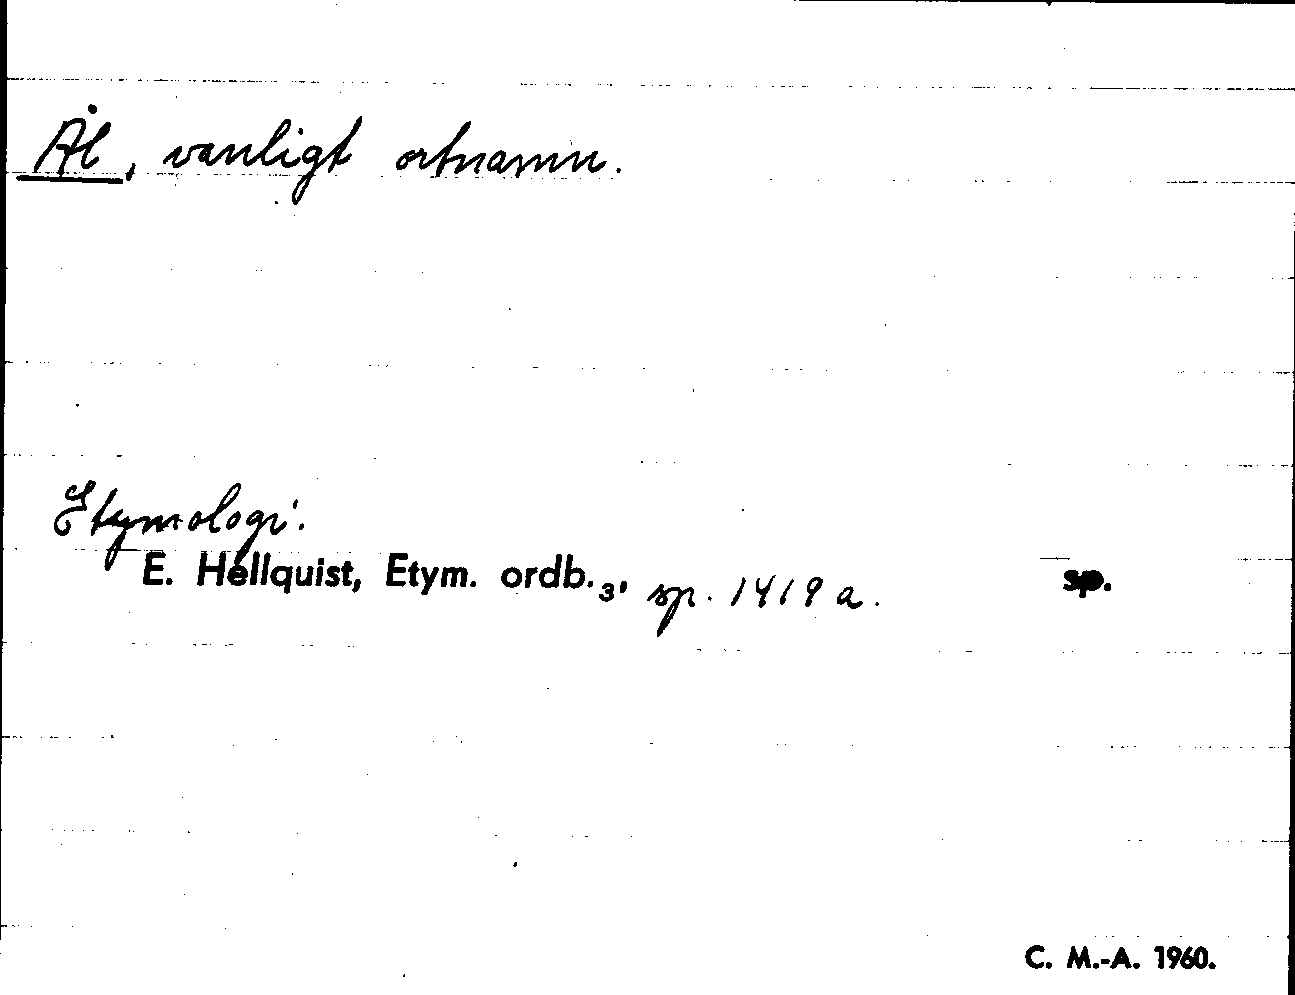 Ål, vanligt ortnamn.
Etymologi.
E. Hellquist, Etym. ordb.₃, sp. 1419 a. sp.
C. M.-A. 1960.